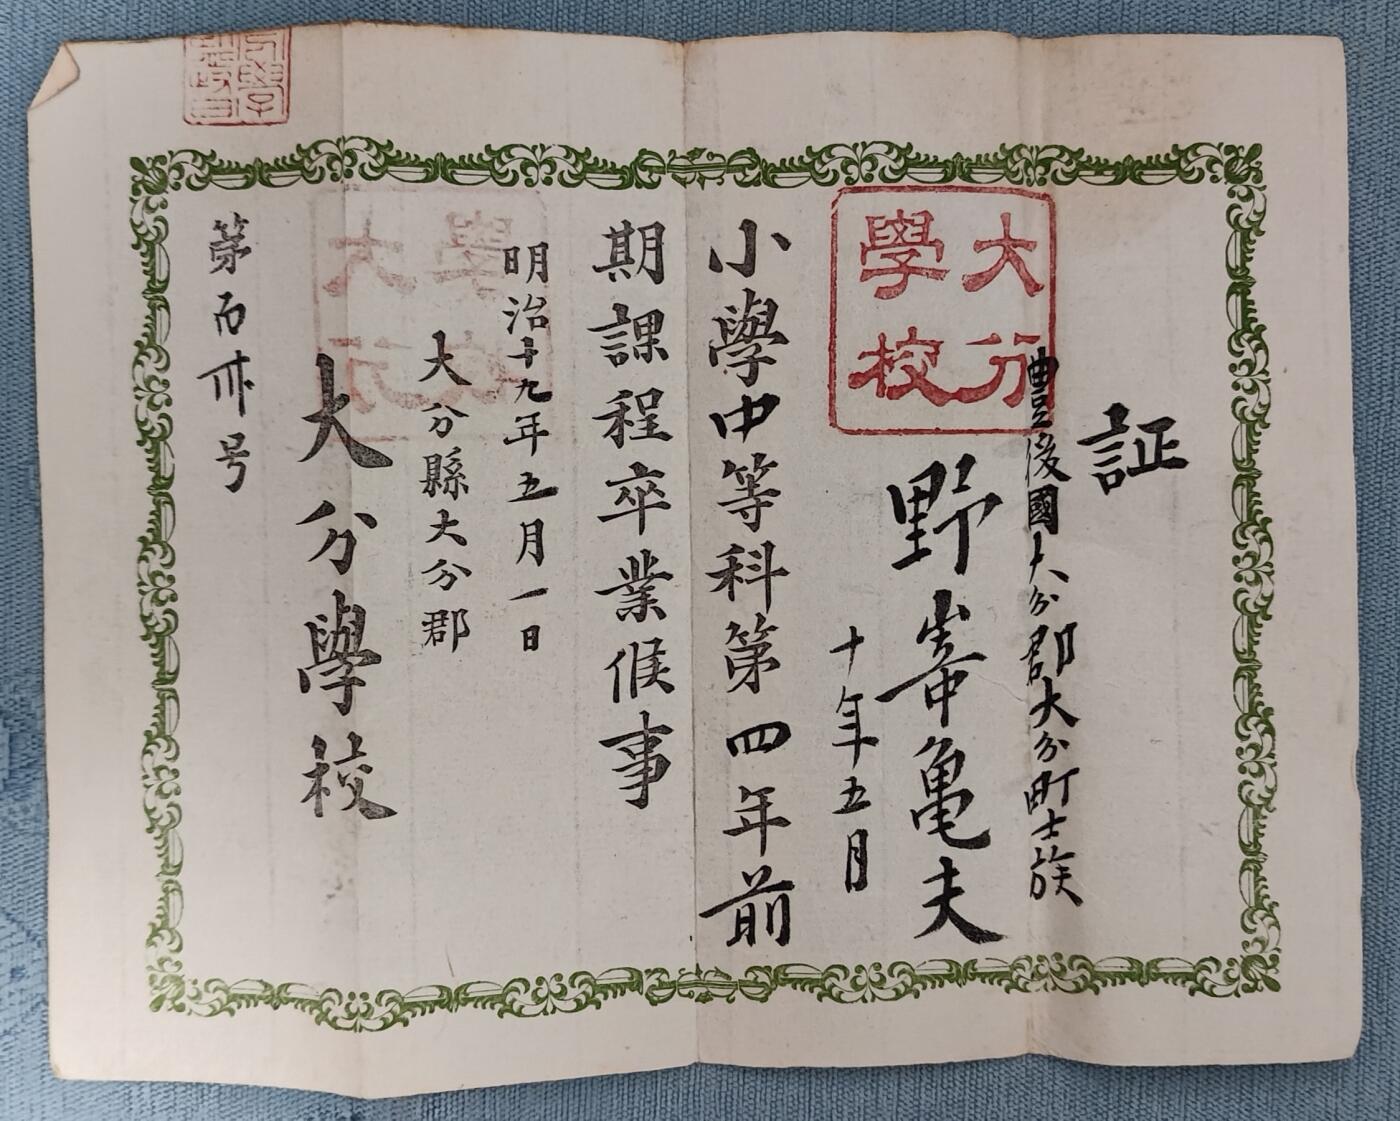 証
豊後國大分郡大分町士族
野㟢亀夫
十年五月
小學中等科第四年前
期課程卒業候事
明治十九年五月一日
大分縣大分郡
大分學校
第百卅号
大分
學校